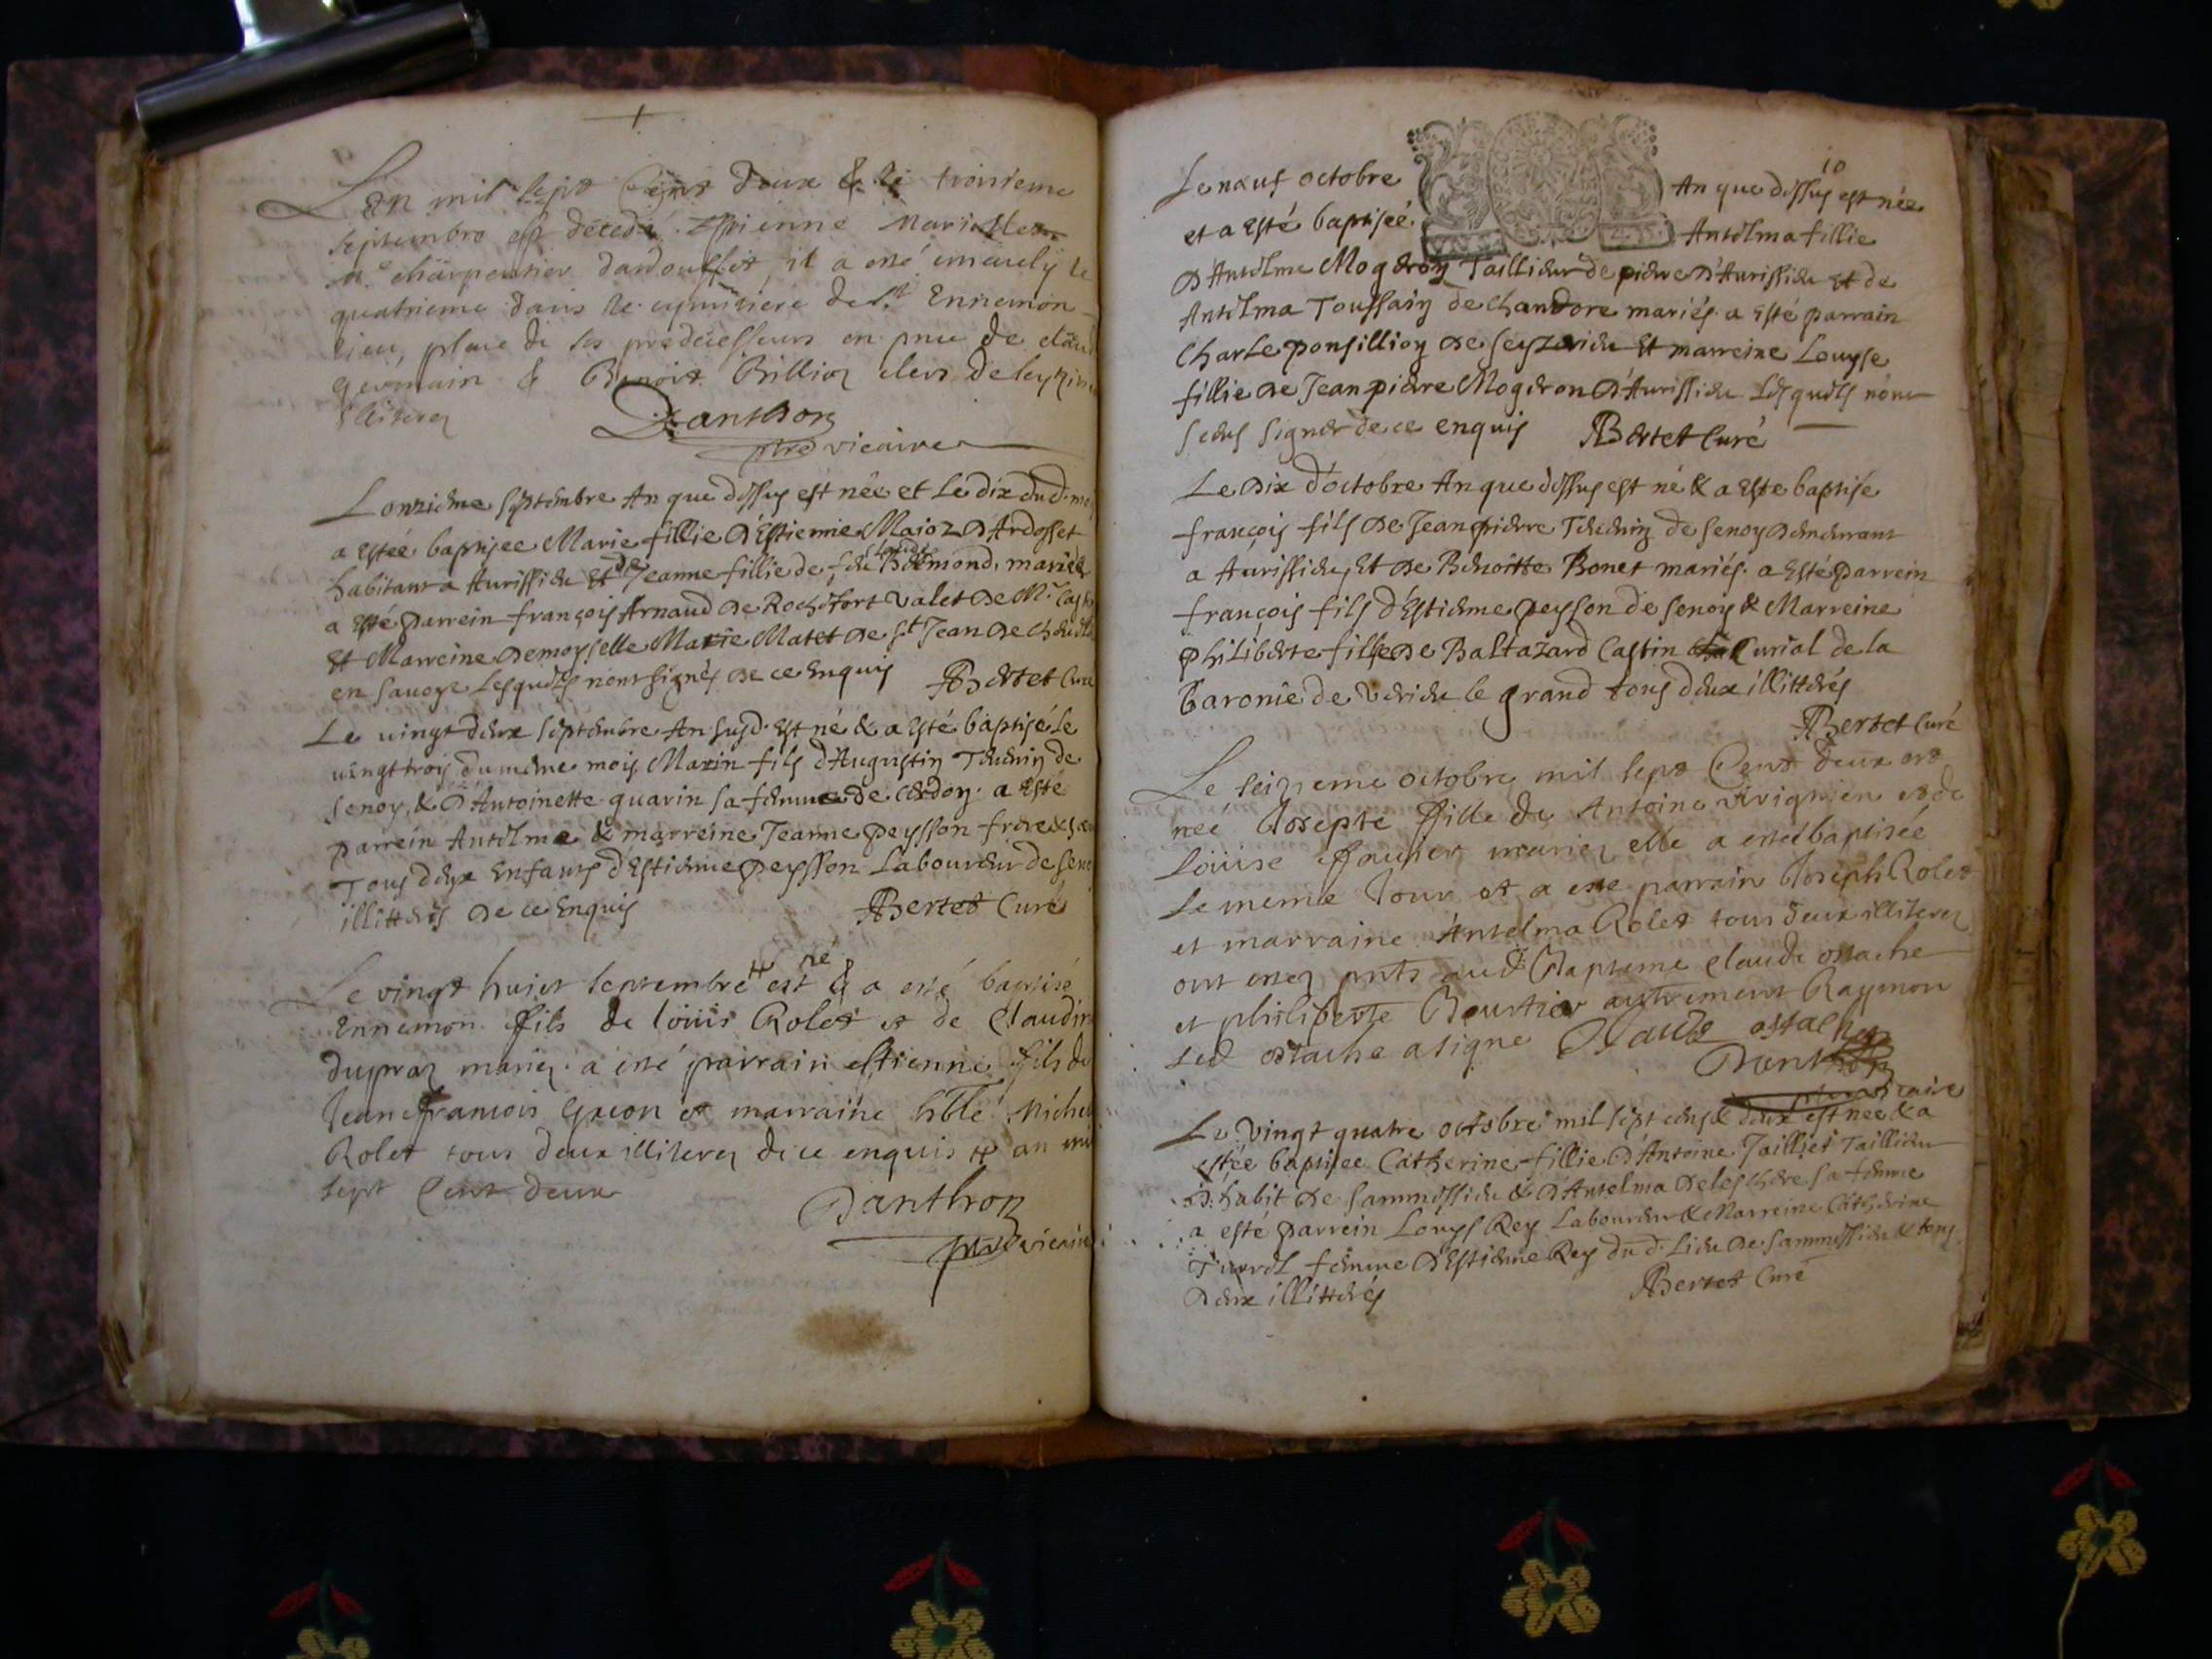 Lan mil sept Cent deux & le troisieme
septembre est décedé Estienne Mariollet
me charpentier dardousset, il a esté enseuely le
quatrieme dans le cymitiere de St Ennemon
lieu, place de ses predecesseurs en pnce de claud
germain & Benoist Billion clers de
illiterez
Danthon
pbre vicaire
Lonzieme septembre An que dessus est née et Le dix dud. moy
a estée baptisee Marie fillie d'Estienne Maioz d'Ardosset
habitant a Aurissieu et de Jeanne fillie de feu Bormond, mariés
a esté parrein françois Arnaud de Rochefort valet de Mr
Et Marreine demoyselle Marie Matet de St Jean de
en savoye Lesquels n'ont signés de ce Enquis ABertet Curé
Le vingt deux septembre An susd. est né & a esté baptisé le
vingt troy du meme mois Marin fils d'Augustin Thevenin de
senoy, & d'Antoinette guarin sa femme de cerdon. a esté
parrein Antelme & marreine Jeanne peysson frere &
Tous deux Enfants d'Estienne peysson Laboureur de
illitterés de ce Enquis ABertet Curé
Le vingt huict septembre # est né & a esté baptisé
Ennemon fils de loüis Rolet et de Claudin
dupraz mariez a esté parrain estienne fils de
Jean francois et marraine Michel
Rolet tous deux illiterez de ce enquis # an mil
sept Cent deux
Danthon
pbre vicaire
10
Le neuf octobre An que dessus est née
et a esté baptisée Antelma fillie
d'Antelme Mogeron Taillieur de pierre d'Aurissieu Et de
Antelma Toussain de Chandore mariés. a esté parrain
Charle ponsillion de seyzerieu Et marreine Louyse
fillie de Jean pierre Mogeron d'Aurissieu Lesquels n'ont
sceus signer de ce enquis ABertet Curé
Le dix d'octobre An que dessus est né & a este baptise
françois fils de Jean pierre Thevenin de senoy demeurant
a Aurissieu, Et de Benoitte Bonet mariés. a Esté parrein
françois fils d'Estienne peysson de senoy & Marreine
philiberte fille de Baltazard Castin Curial de la
baronie de verieu le grand tous deux illitterés
ABertet Curé
Le seizieme octobre mil sept Cent deux est
née Josepte fille de Antoine Avignien et de
Loüise mariez elle a esté baptisée
le meme Jour et a esté parrain Joseph Rolet
et marraine Antelma Rolet tous deux illiterez
ont estez pnts aud. Bapteme claude ostache
et philiberte Bourtier autrement Raymon
led ostache a signe Claude ostache
Danthon
pbre vicaire
Le vingt quatre octobre mil sept cens & deux est née & a
estée baptisee Catherine fillie d'Antoine Jailliet Taillieu
D. habit de sammissieu & d'Antelma Deleschere sa femme
a esté parrein Louys Rey Laboureur & Marreine Catherine
femme d'Estienne Rey du d. Lieu de sammissieu & tous
Deux illitterés ABertet Curé